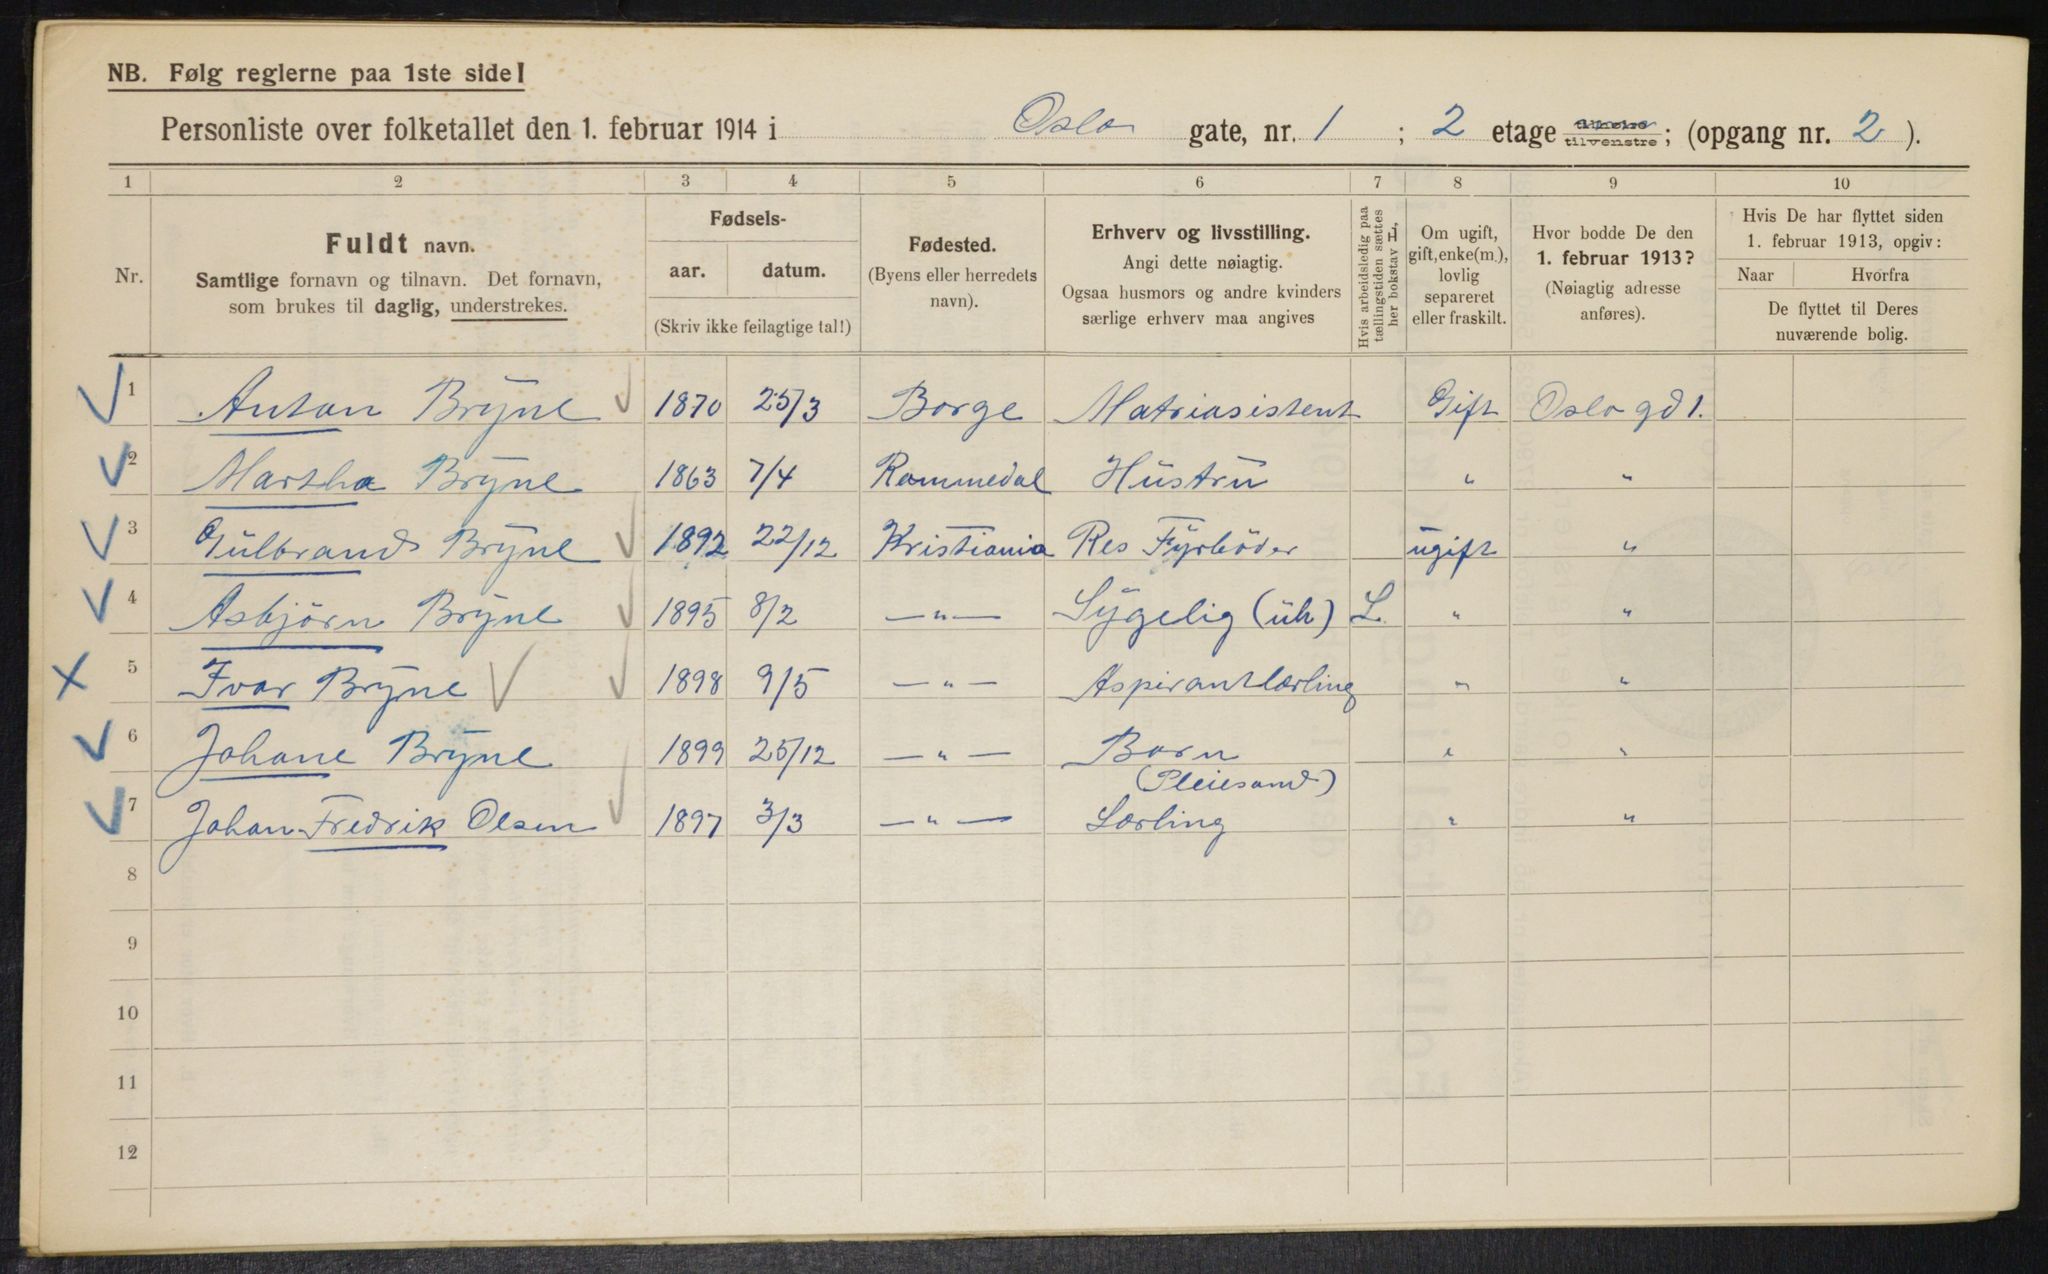 NB. Følg reglerne paa 1ste side!
Personliste over folketallet den 1. februar 1914 i Oslo gate, nr. 1 ; 2 etage tilhøire tilvenstre ; (opgang nr. 2 ).
1 2 3 4 5 6 7 8 9 10
Nr.
Fuldt navn.
Samtlige fornavn og tilnavn. Det fornavn,
som brukes til daglig, understrekes.
Fødsels-
aar. datum.
(Skriv ikke feilagtige tal!)
Fødested.
(Byens eller herredets
navn).
Erhverv og livsstilling.
Angi dette nøiagtig.
Ogsaa husmors og andre kvinders
særlige erhverv maa angives
Hvis arbeidsledig paa
tællingstiden sættes
her bokstav L.
Om ugift,
gift, enke(m.),
lovlig
separeret
eller fraskilt.
Hvor bodde De den
1. februar 1913?
(Nøiagtig adresse
anføres).
Hvis De har flyttet siden
1. februar 1913, opgiv:
Naar Hvorfra
De flyttet til Deres
nuværende bolig.
1 Anton Bryne 1870 25/3 Borge Matriasistent Gift Oslo gd 1.
2 Martha Bryne 1863 7/4 Rommedal Hustru " "
3 Gulbrand Bryne 1892 22/12 Kristiania Res Fyrböder ugift "
4 Asbjörn Bryne 1895 8/2 — " — Sygelig (uh) L. " "
5 Ivar Bryne 1898 9/5 — " — Aspirantlærling " "
6 Johane Bryne 1899 25/12 — " — Barn " "
(Pleiesønd)
7 Johan Fredrik Olsen 1897 3/3 — " — Lærling " "
8
9
10
11
12